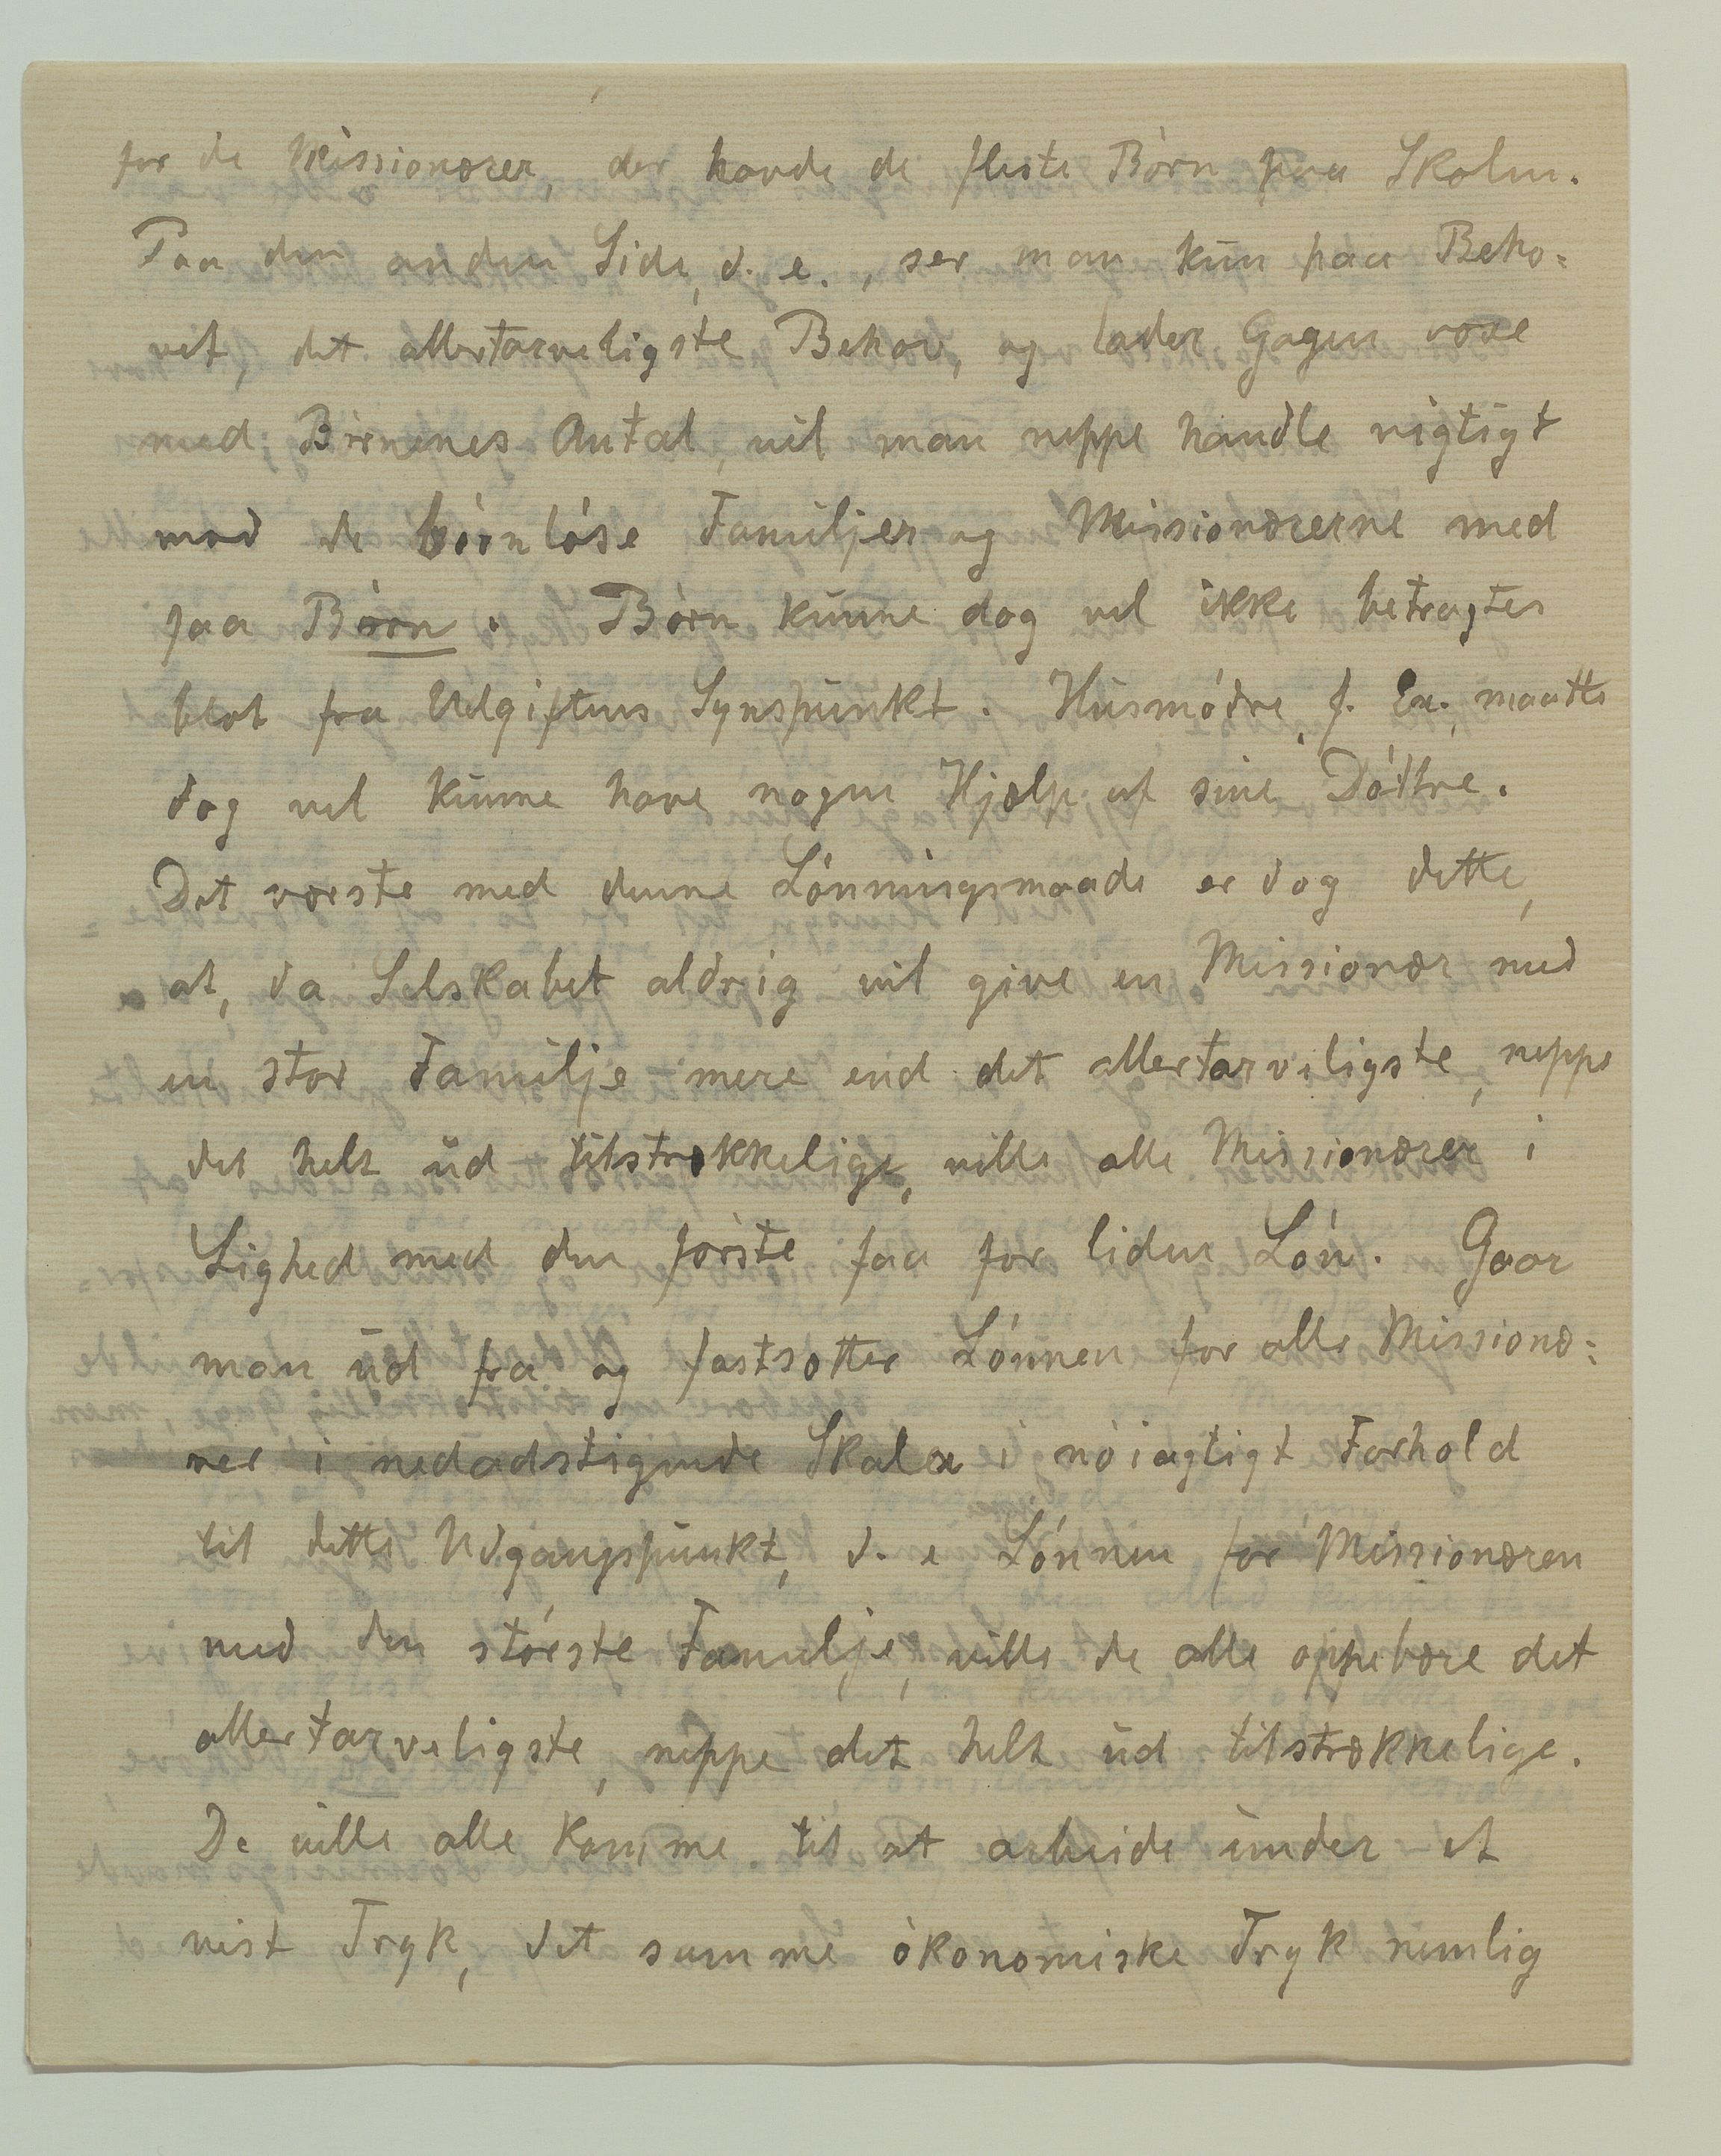 for de Missionærer, der havde de fleste Börn paa Skolen.
Paa den anden Side, d. e., ser man kun paa Beho=
vet, det allertarveligste Behov, og lader Gagen voxe
med Börnenes Antal, vil man neppe handle rigtigt
mod de börnlöse Familjer og Missionærerne med
faa Börn. Börn kunne dog vel ikke betragtes
blot fra Udgiftens Synspunkt. Husmödre, f. Ex., maatte
dog vel kunne have nogen Hjælp af sine Döttre.
Det værste med denne Lönningsmaade er dog dette,
at, da Selskabet aldrig vil give en Missionær med
en stor Familje mere end det allertarveligste, neppe
det helt ud tilstrækkelige, ville alle Missionærer i
Lighed med den förste faa for liden Lön. Gaar
man ud fra og fastsætter Lönnen for alle Missionæ=
rer i nedadstigende Skala i nöiagtigt Forhold
til dette Udgangspunkt, d. e Lönnen for Missionæren
med den störste Familje, ville de alle oppebære det
allertarveligste, neppe det helt ud tilstrækkelige.
De ville alle komme til at arbeide under et
vist Tryk, det samme ökonomiske Tryk nemlig